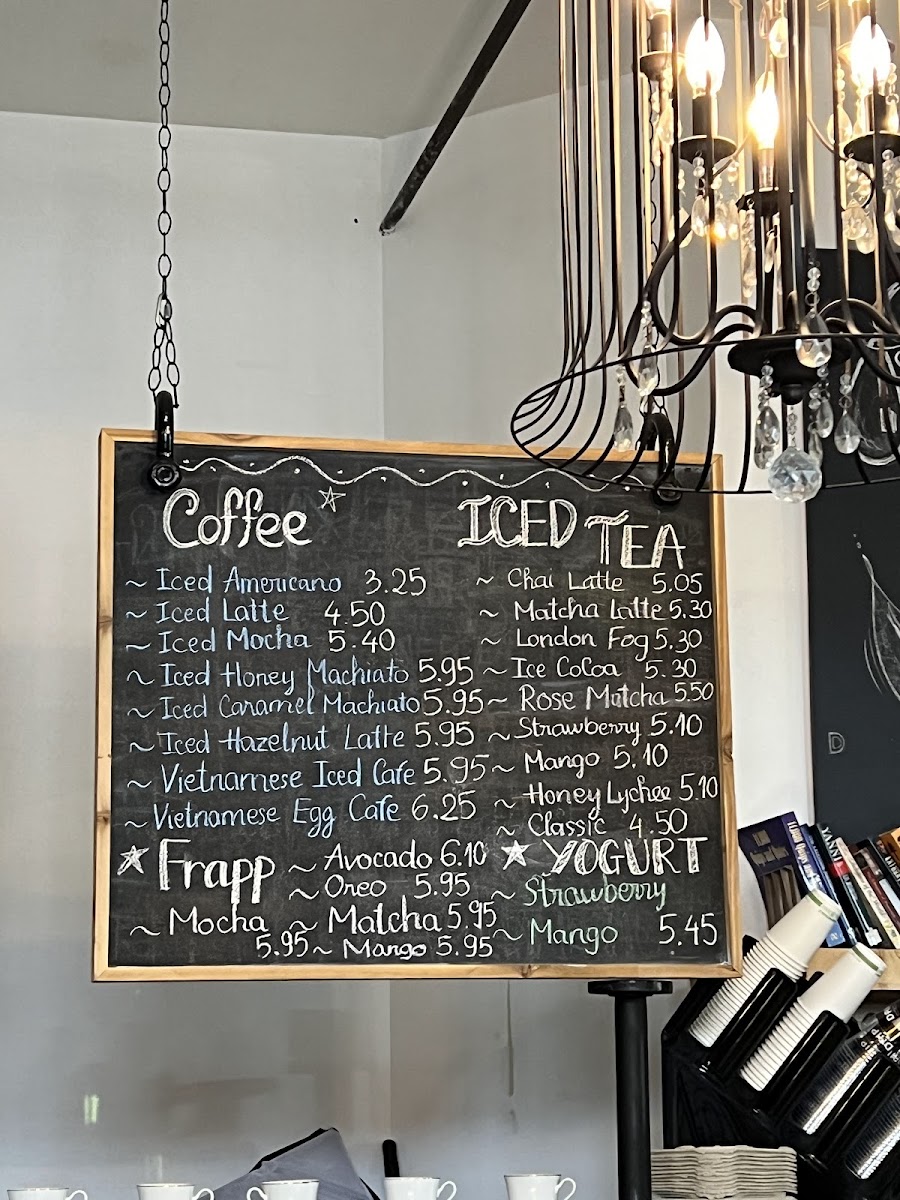 Coffee
~ Iced Americano 3.25
~ Iced Latte 4.50
~ Iced Mocha 5.40
~ Iced Honey Machiato 5.95
~ Iced Caramel Machiato 5.95
~ Iced Hazelnut Latte 5.95
~ Vietnamese Iced Cafe 5.95
~ Vietnamese Egg Cafe 6.25
ICED TEA
~ Chai Latte 5.05
~ Matcha Latte 5.30
~ London Fog 5.30
~ Ice Cocoa 5.30
~ Rose Matcha 5.50
~ Strawberry 5.10
~ Mango 5.10
~ Honey Lychee 5.10
~ Classic 4.50
Frapp
~ Mocha
5.95
~ Avocado 6.10
~ Oreo 5.95
~ Matcha 5.95
~ Mango 5.95
YOGURT
~ Strawberry
~ Mango 5.45
D
YANNI